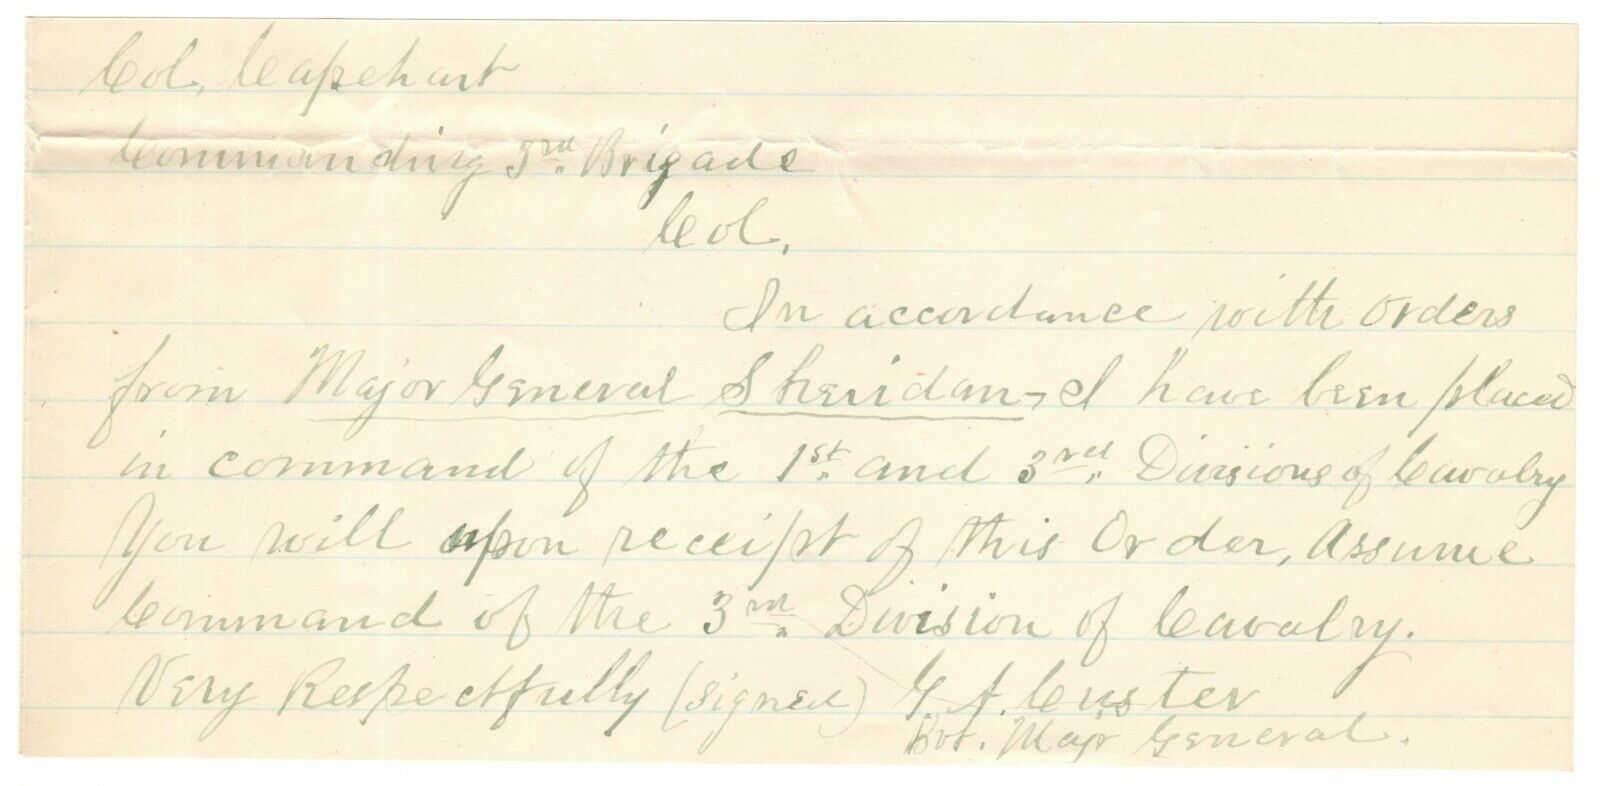 Col, Capehart
Commanding 3rd. Brigade
Col,
In accordance with orders
from Major General Sheridan, I have been placed
in command of the 1st. and 3rd. Divisions of Cavalry
You will upon receipt of this Order, Assume
Command of the 3rd. Division of Cavalry.
Very Respectfully (signed) G. A. Custer
Bvt. Majr General.